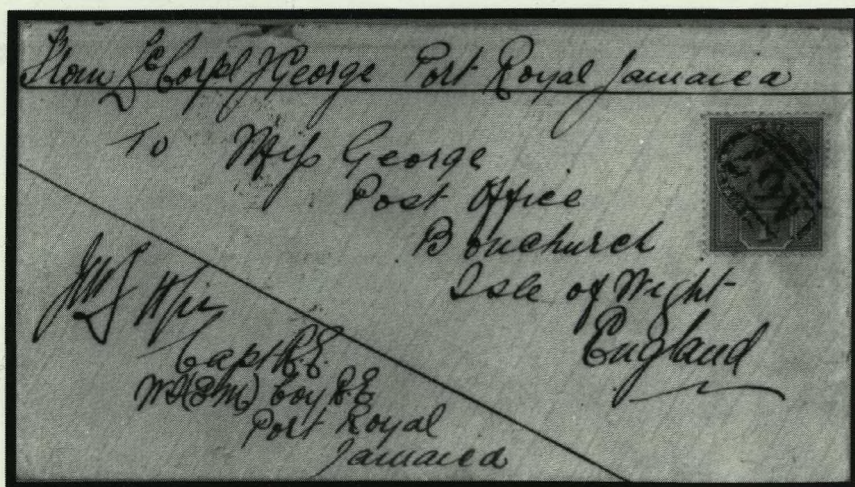 From Lce Corpl J George Port Royal Jamaica
To Miss George
Post Office
Bonchurch
Isle of Wight
England
Capt R.E.
Coy R.E
Port Royal
Jamaica